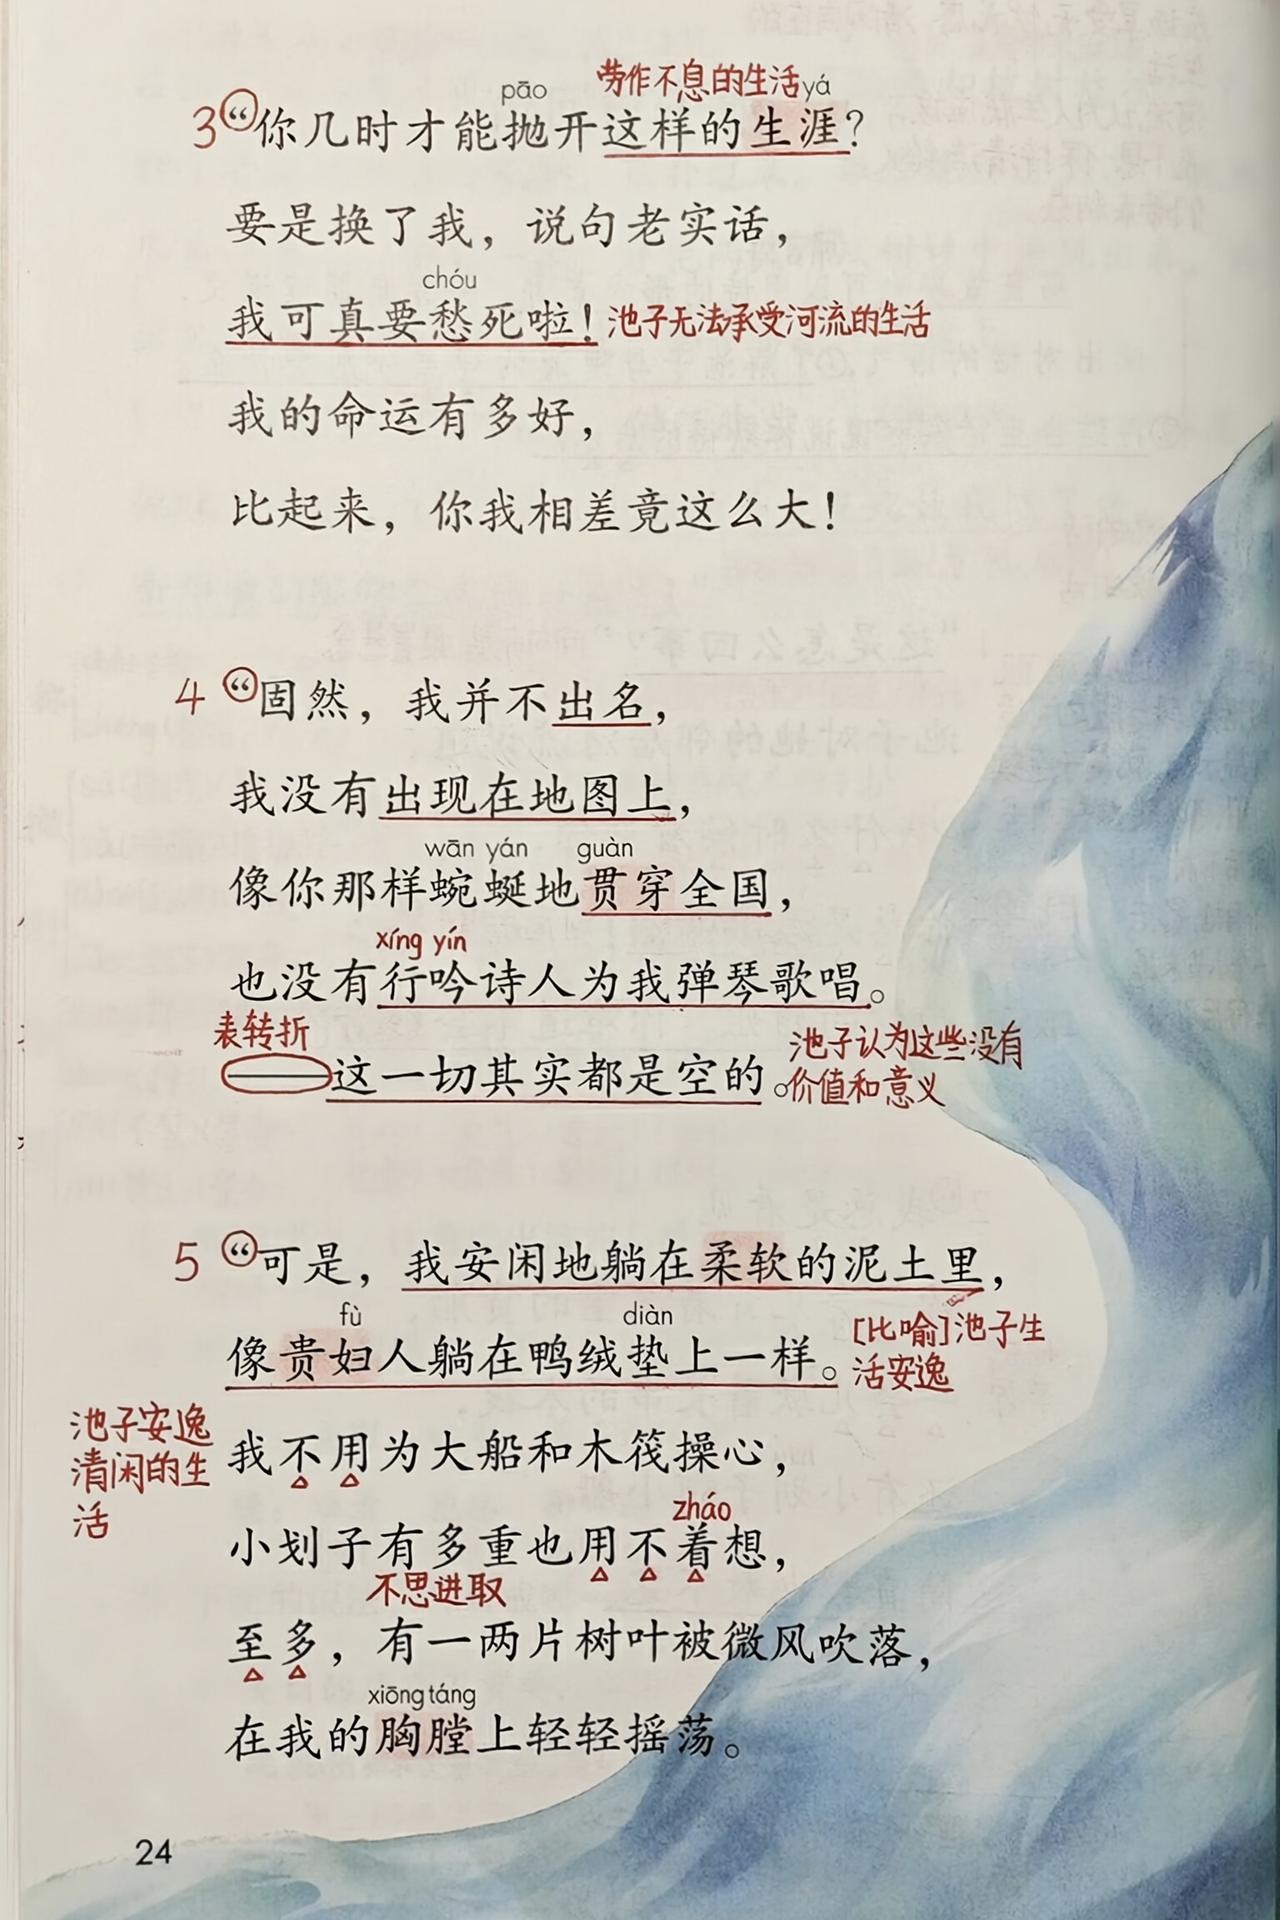 劳作不息的生活
pāo yá
3 “你几时才能抛开这样的生涯？
要是换了我，说句老实话，
chóu
我可真要愁死啦！池子无法承受河流的生活
我的命运有多好，
比起来，你我相差竟这么大！
4 “固然，我并不出名，
我没有出现在地图上，
wān yán guàn
像你那样蜿蜒地贯穿全国，
xíng yín
也没有行吟诗人为我弹琴歌唱。
表转折
——这一切其实都是空的。池子认为这些没有
价值和意义
5 “可是，我安闲地躺在柔软的泥土里，
fù diàn
像贵妇人躺在鸭绒垫上一样。[比喻]池子生
活安逸
池子安逸
清闲的生
活
我不用为大船和木筏操心，
zháo
小划子有多重也用不着想，
不思进取
至多，有一两片树叶被微风吹落，
xiōng táng
在我的胸膛上轻轻摇荡。
24